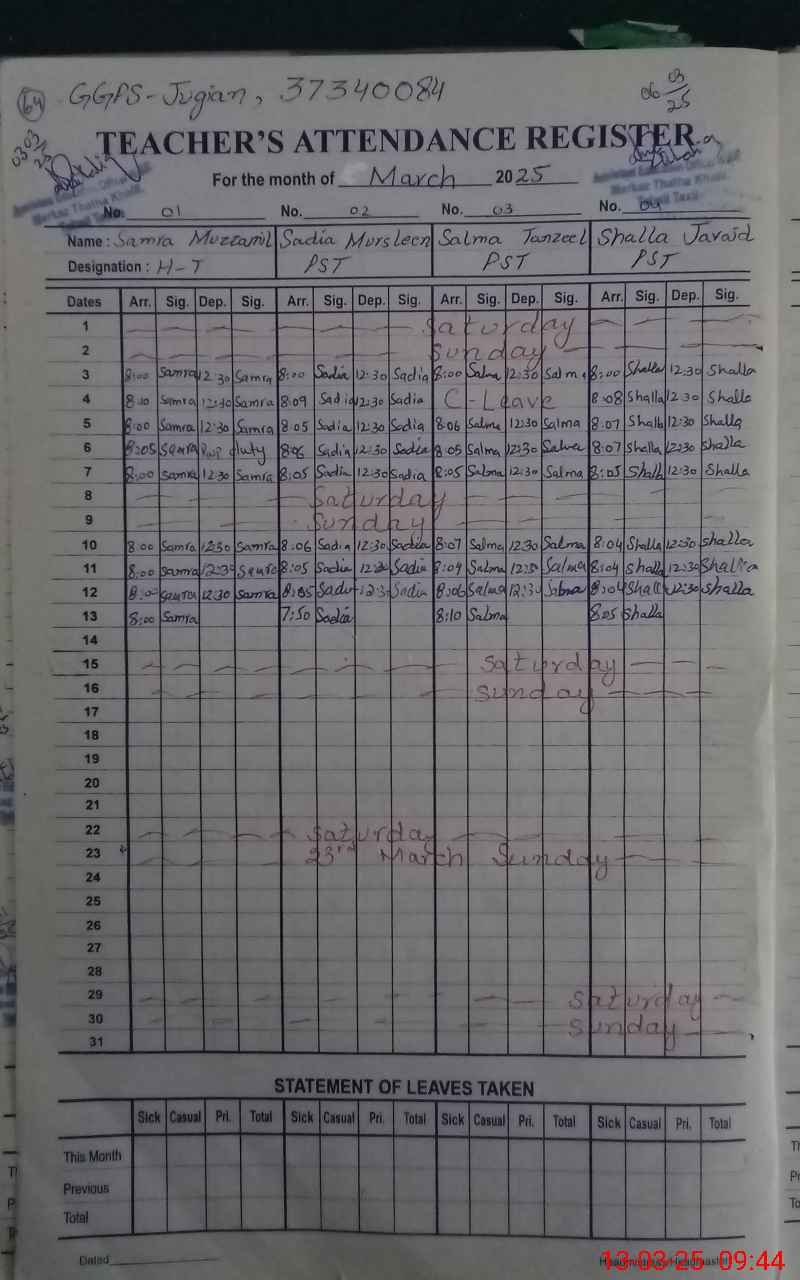 64 GGPS-Jugian, 37340084 06 03/25
03 03/25
TEACHER'S ATTENDANCE REGISTER
For the month of March 2025
No. 01 No. 02 No. 03 No. 04
Name : Samra Muzzamil Sadia Mursleen Salma Tanzeel Shalla Javaid
Designation : H-T PST PST PST
Dates Arr. Sig. Dep. Sig. Arr. Sig. Dep. Sig. Arr. Sig. Dep. Sig. Arr. Sig. Dep. Sig.
1 Saturday
2 Sunday
3 8:00 Samra 12:30 Samra 8:00 Sadia 12:30 Sadia 8:00 Salma 12:30 Salma 8:00 Shalla 12:30 Shalla
4 8:10 Samra 12:30 Samra 8:09 Sadia 12:30 Sadia C-Leave 8:08 Shalla 12:30 Shalla
5 8:00 Samra 12:30 Samra 8:05 Sadia 12:30 Sadia 8:06 Salma 12:30 Salma 8:07 Shalla 12:30 Shalla
6 8:05 Samra duty 8:06 Sadia 12:30 Sadia 8:05 Salma 12:30 Salma 8:07 Shalla 12:30 Shalla
7 8:00 Samra 12:30 Samra 8:05 Sadia 12:30 Sadia 8:05 Salma 12:30 Salma 8:05 Shalla 12:30 Shalla
8 Saturday
9 Sunday
10 8:00 Samra 12:30 Samra 8:06 Sadia 12:30 Sadia 8:07 Salma 12:30 Salma 8:04 Shalla 12:30 Shalla
11 8:00 Samra 12:30 Samra 8:05 Sadia 12:30 Sadia 8:04 Salma 12:30 Salma 8:04 Shalla 12:30 Shalla
12 8:00 Samra 12:30 Samra 8:05 Sadia 12:30 Sadia 8:06 Salma 12:30 Salma 8:04 Shalla 12:30 Shalla
13 8:00 Samra 7:50 Sadia 8:10 Salma 8:05 Shalla
14
15 Saturday
16 Sunday
17
18
19
20
21
22 Saturday
23 23rd March Sunday
24
25
26
27
28
29 Saturday
30 Sunday
31
STATEMENT OF LEAVES TAKEN
Sick Casual Pri. Total Sick Casual Pri. Total Sick Casual Pri. Total Sick Casual Pri. Total
This Month
Previous
Total
Dated
13-03-25 09:44